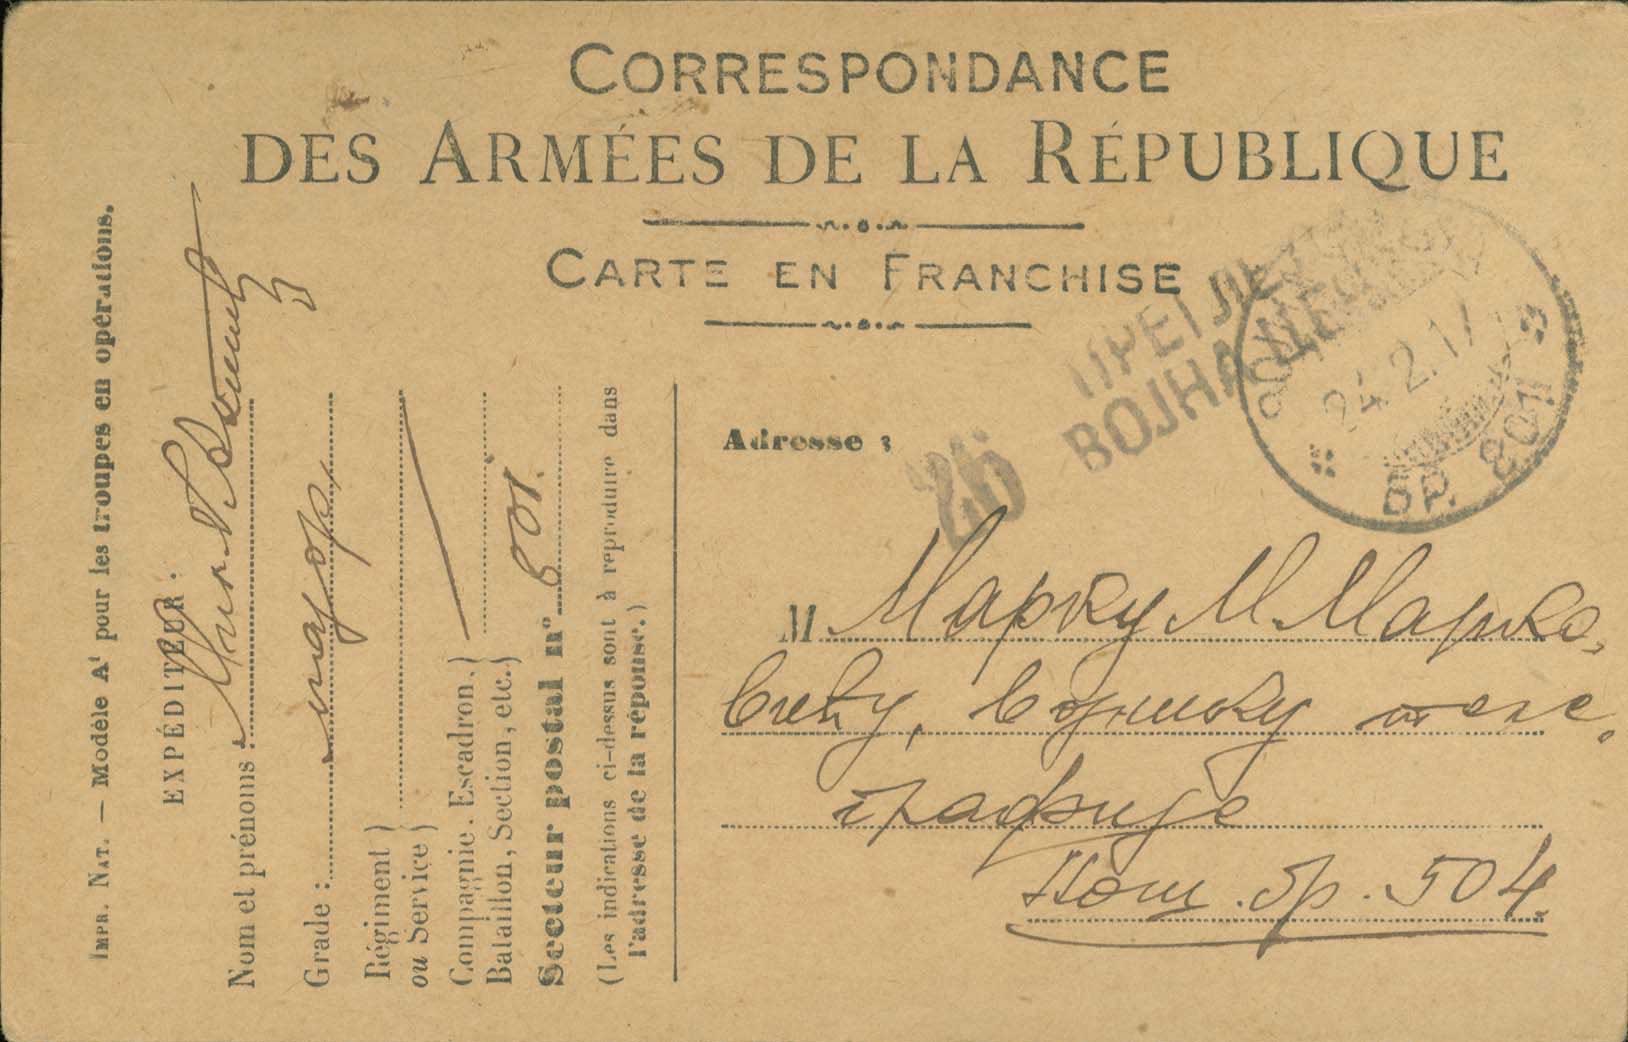 CORRESPONDANCE
DES ARMÉES DE LA RÉPUBLIQUE
CARTE EN FRANCHISE
Impr. Nat. — Modèle A¹ pour les troupes en opérations.
EXPÉDITEUR :
Nom et prénoms :
Grade : мајор,
Régiment }
ou Service }
Compagnie, Escadron, }
Bataillon, Section, etc. }
Secteur postal n° 801.
(Les indications ci-dessus sont à reproduire dans
l'adresse de la réponse.)
ПРЕГЛЕ
ВОЈНА ЦЕ
26
24.2.17
БР. 801
Adresse :
M Марку М. Марко-
вићу, војнику теле-
графије
Пош. бр. 504.